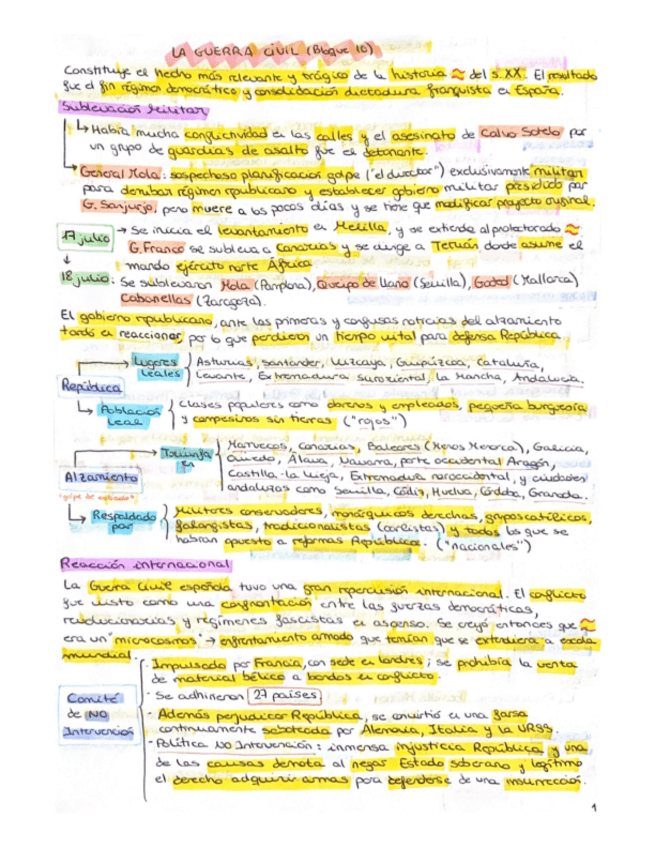 LA GUERRA CIVIL (Bloque 10)
Constituye el hecho más relevante y trágico de la historia 🇪🇸 del s. XX. El resultado
fue el fin régimen democrático y consolidación dictadura franquista en España.
Sublevación Militar
↳ Había mucha conflictividad en las calles y el asesinato de Calvo Sotelo por
un grupo de guardias de asalto fue el detonante.
↳ General Mola: sospechoso planificación golpe ("el director") exclusivamente militar
para derribar régimen republicano y establecer gobierno militar presidido por
G. Sanjurjo, pero muere a los pocos días y se tiene que modificar proyecto original.
17 julio → Se inicia el levantamiento en Melilla, y se extiende al protectorado 🇪🇸
G. Franco se subleva a Canarias y se dirige a Tetuán donde asume el
mando ejército norte África
↓
18 julio: Se sublevaron Mola (Pamplona), Queipo de Llano (Sevilla), Goded (Mallorca)
Cabanellas (Zaragoza).
El gobierno republicano, ante las primeras y confusas noticias del alzamiento
tardó en reaccionar, por lo que perdieron un tiempo vital para defensa República.
República
→ Lugares leales { Asturias, Santander, Vizcaya, Guipúzcoa, Cataluña,
Levante, Extremadura suroriental, la Mancha, Andalucía.
↳ Población leal { clases populares como obreros y empleados, pequeña burguesía
y campesinos sin tierras ("rojos")
Alzamiento
"golpe de estado"
→ Triunfa en { Marruecos, Canarias, Baleares (Menos Menorca), Galicia,
Oviedo, Álava, Navarra, parte occidental Aragón,
Castilla-la Vieja, Extremadura noroccidental, y ciudades
andaluzas como Sevilla, Cádiz, Huelva, Córdoba, Granada.
↳ Respaldado por { Militares conservadores, monárquicos derechas, grupos católicos,
falangistas, tradicionalistas (carlistas) y todos los que se
habían opuesto a reformas República. ("nacionales")
Reacción internacional
La Guerra Civil española tuvo una gran repercusión internacional. El conflicto
fue visto como una confrontación entre las fuerzas democráticas,
revolucionarias y regímenes fascistas en ascenso. Se creyó entonces que 🇪🇸
era un "microcosmos" → enfrentamiento armado que temían que se extendiera a escala
mundial.
Comité
de NO
Intervención
· Impulsado por Francia, con sede en Londres; se prohibía la venta
de material bélico a bandos en conflicto.
· Se adhirieron 27 países
· Además perjudicar República, se convirtió en una farsa
continuamente saboteada por Alemania, Italia y la URSS.
· Política NO Intervención: inmensa injusticia República y una
de las causas derrota al negar Estado soberano y legítimo
el derecho adquirir armas para defenderse de una insurrección.
1